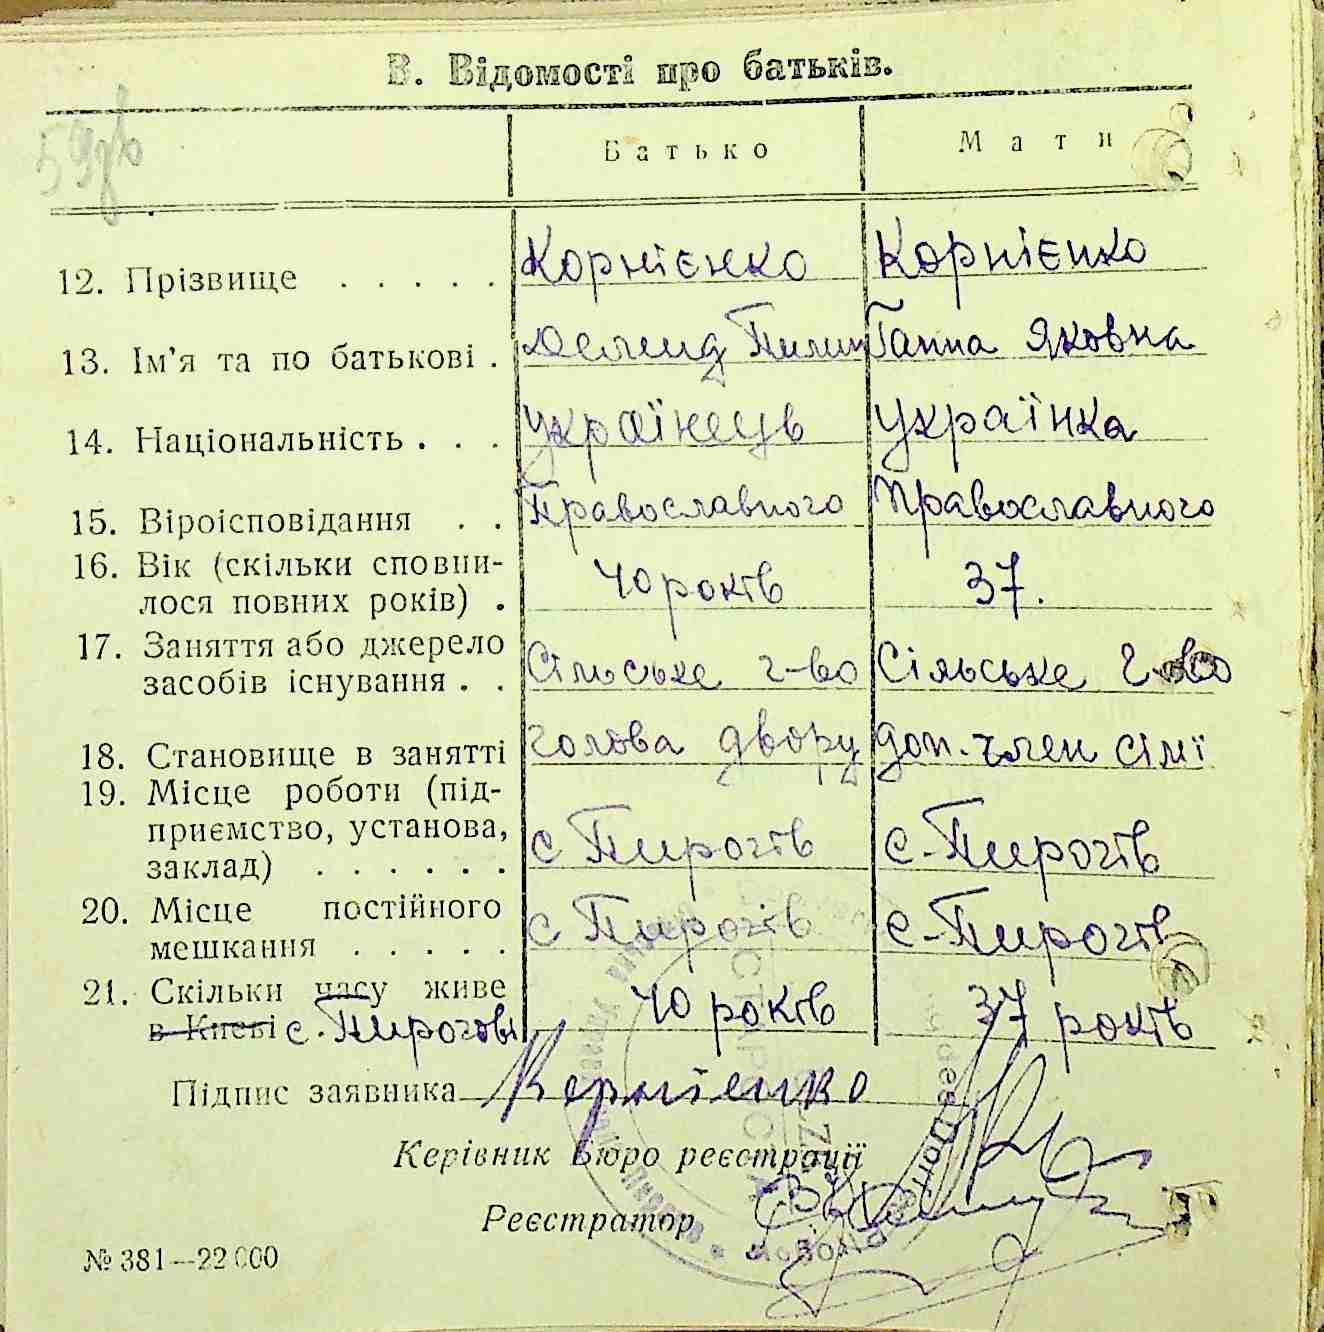 В. Відомості про батьків.
Батько Мати
12. Прізвище . . . . . Корнієнко Корнієнко
13. Ім'я та по батькові . Пилип Ганна Яковна
14. Національність . . . українець українка
15. Віроісповідання . . Православного Православного
16. Вік (скільки сповни-
лося повних років) . 40 років 37.
17. Заняття або джерело
засобів існування . . Сільське г-во Сільське г-во
18. Становище в занятті голова двору доп. член сімї
19. Місце роботи (під-
приємство, установа,
заклад) . . . . . . с Пирогів с-Пирогів
20. Місце постійного
мешкання . . . . . с Пирогів с-Пирогів
21. Скільки часу живе
в Києві с. Пирогові 40 років 37 років
Підпис заявника Корнієнко
Керівник Бюро реєстрації
Реєстратор
№ 381—22 000